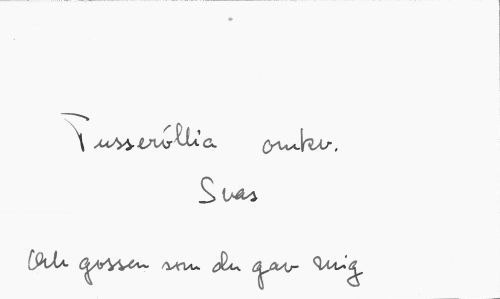 Tusseróllia omkv.
Svas
Och gossen som du gav mig